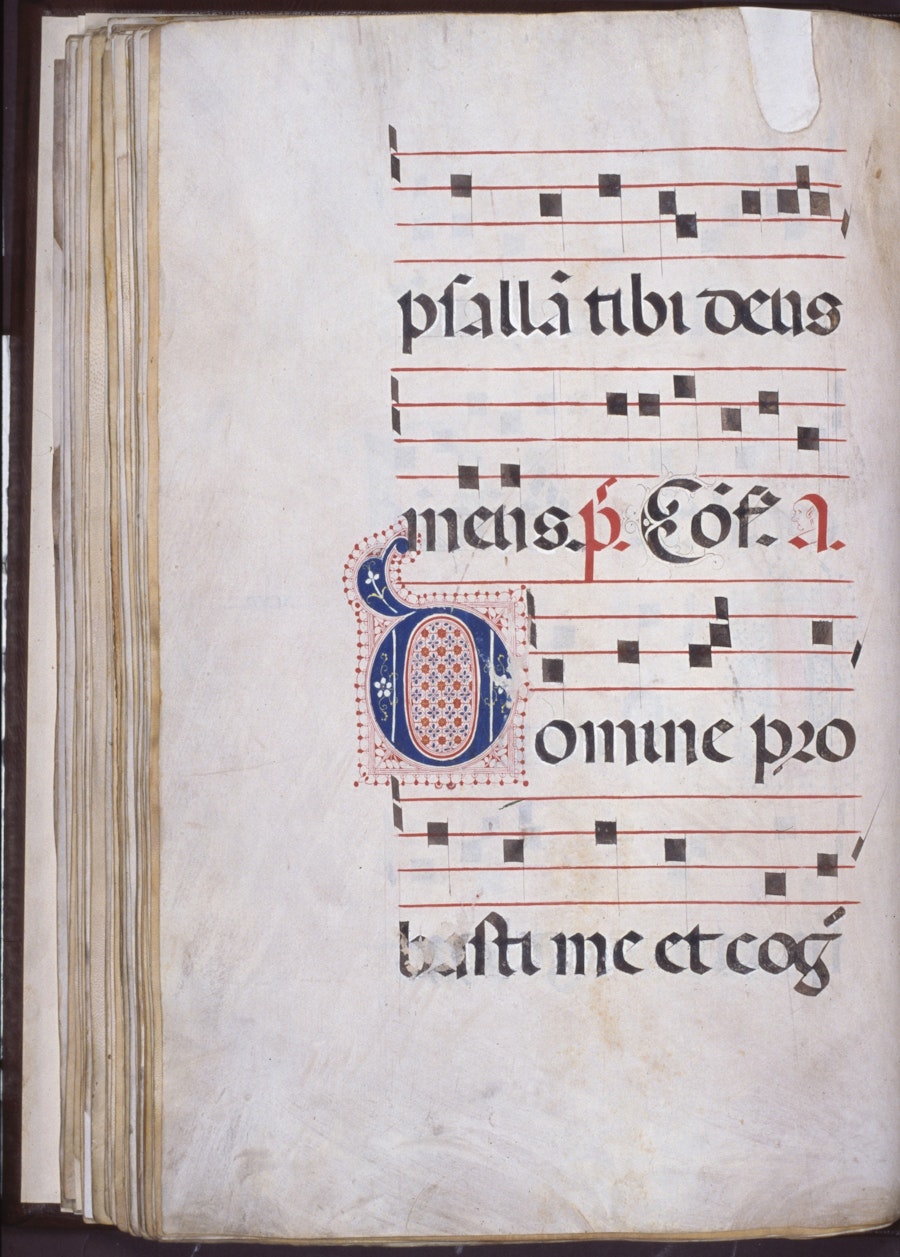 psallā tibi deus
meus. p̄. Cōf. A.
Domine pro
basti me et coḡ